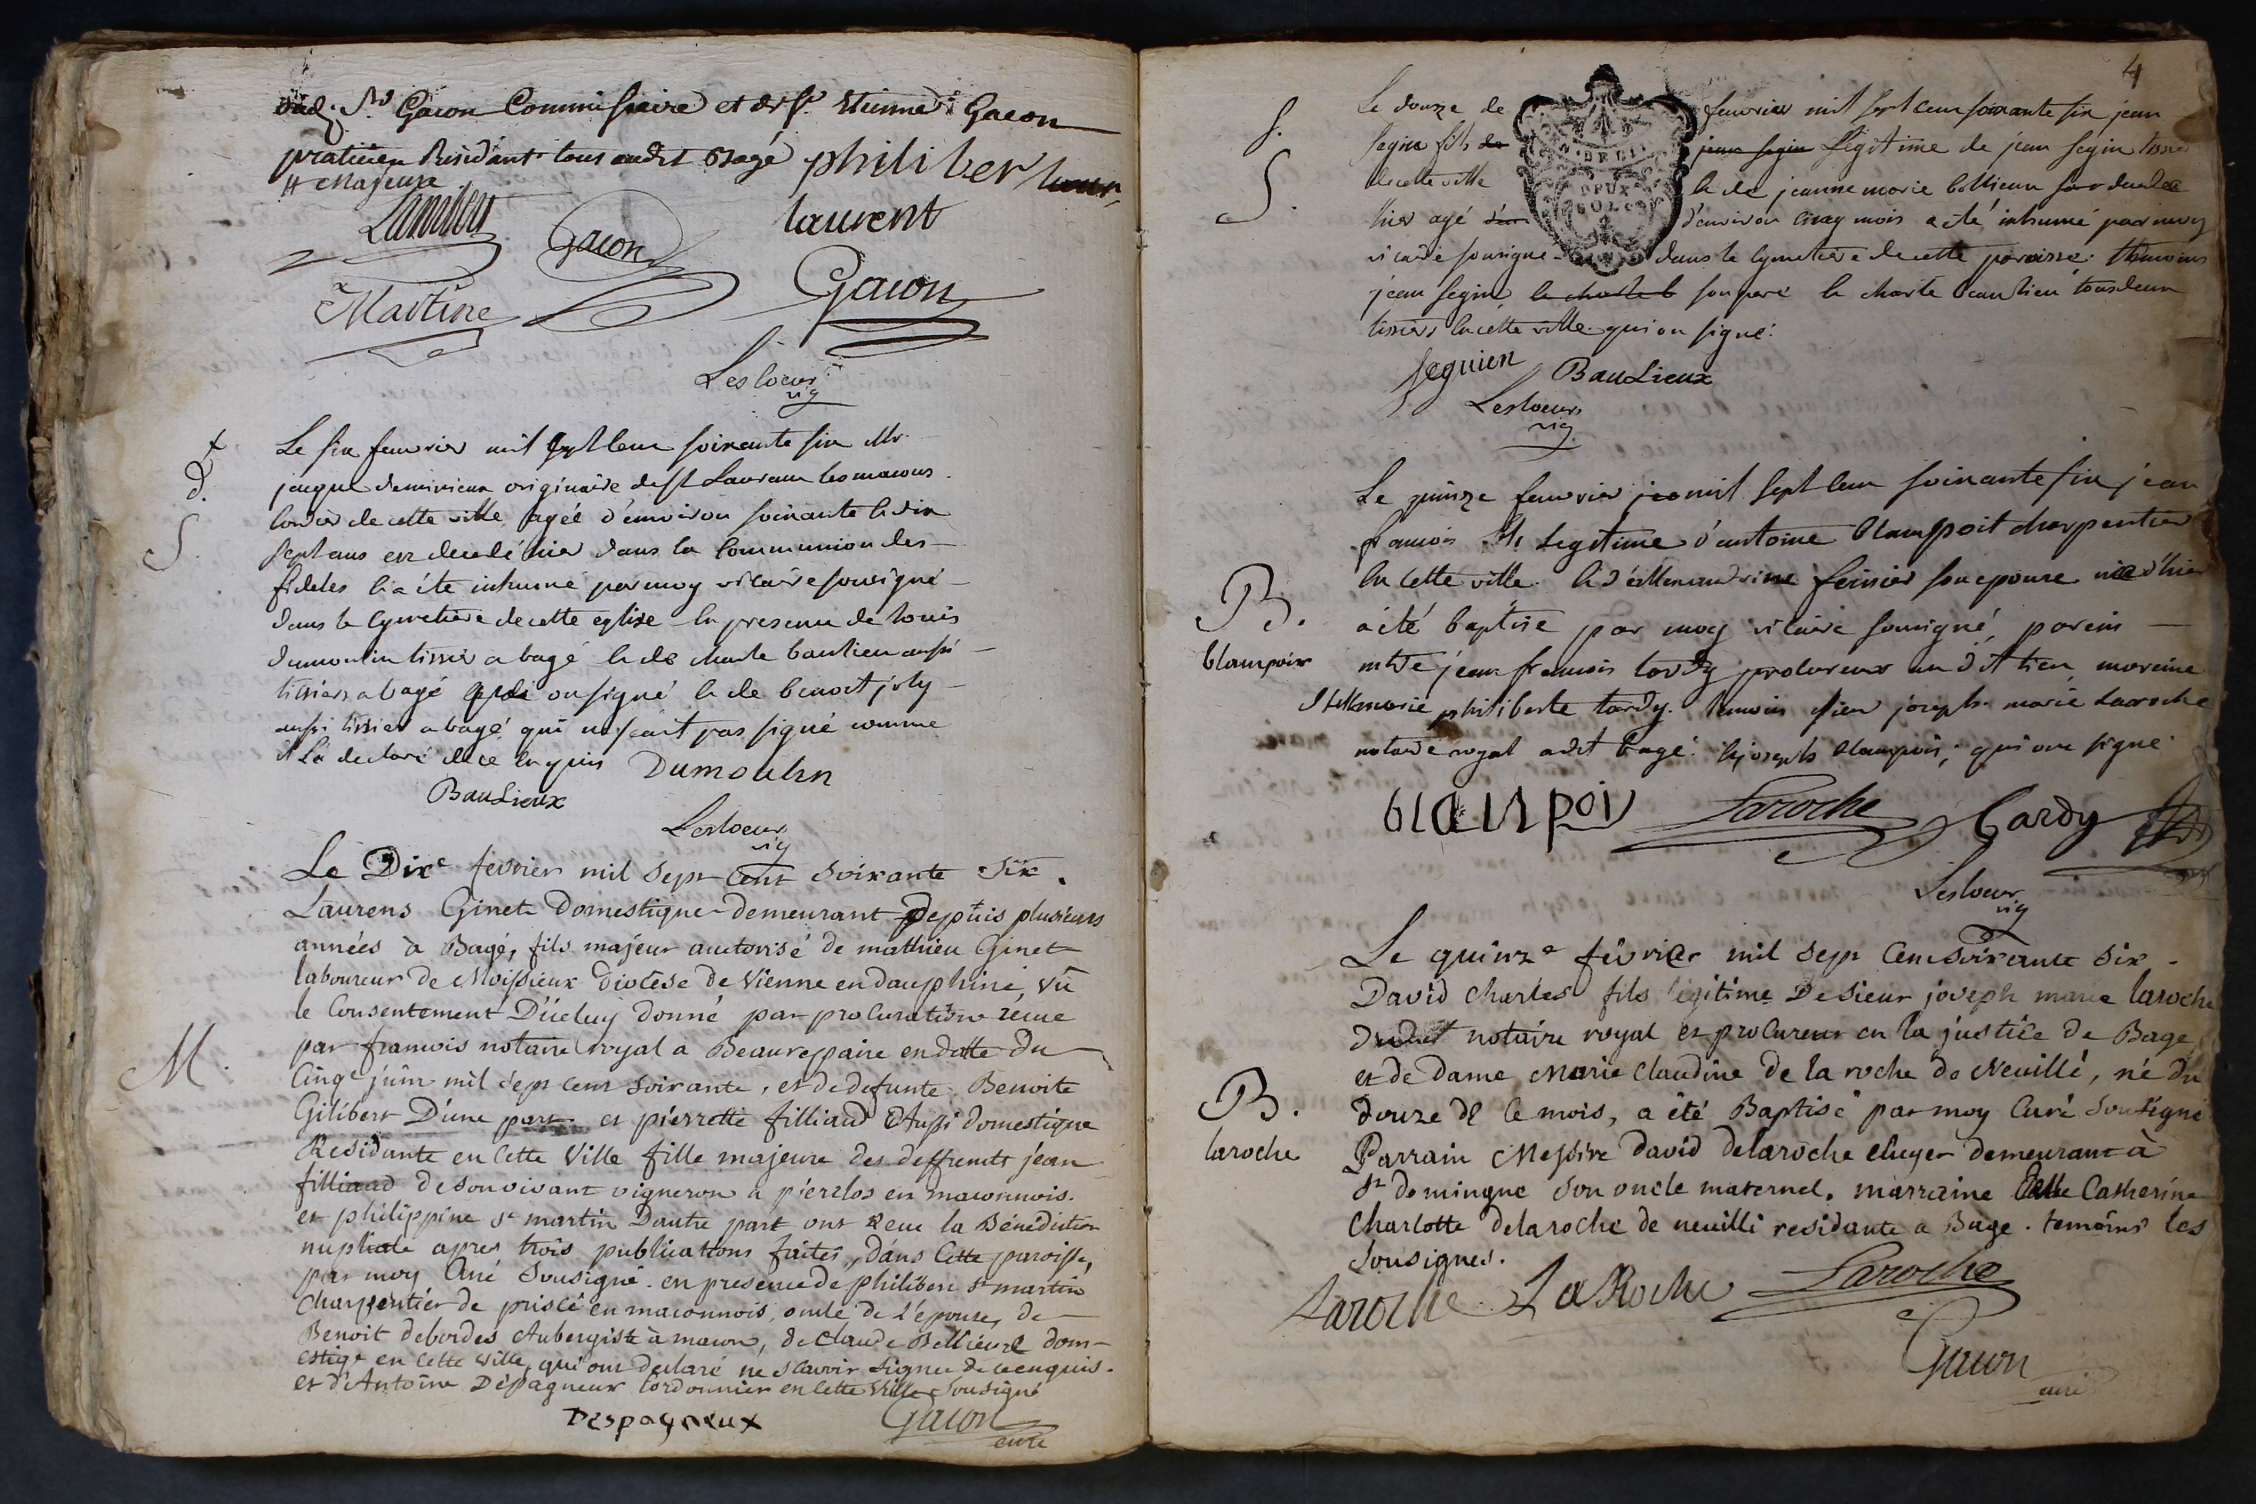 Sr. Gacon Commissaire et de Sr. Etienne Gacon
praticien Residant tous audit Bagé philiber
# Majeure
Lambert
Gacon
laurent
Martine
Gacon
Lesloeur
vic
Le six fevrier mil sept cens soixante six Mr.
jacque originaire de st Laurans les macons
de cette ville agée d'environ soixante et dix
sept ans est decedé hier dans la Communion des
fideles et a été inhumé par moy vicaire sousigné
dans le cymetiere de cette eglise en presence de louis
dumoulin tissier a bagé et de charle baulieu aussi
tissier a bagé qui on signé et de benoit joly
aussi tissier a bagé qui ne scait pas signé comme
il la declaré de ce enquis Dumoulin
BauLieux
Lesloeur
vic
d.
S.
Le Dixe fevrier mil sept Cent soixante six.
Laurens Ginet Domestique demeurant Depuis plusieurs
années à Bagé, fils majeur auctorisé de mathieu Ginet
laboureur de Moissieux diocese de Vienne en dauphiné, vû
le Consentement D'iceluy donné par procuration recue
par francois notaire royal a Beaurepaire en datte du
Cinqe juin mil sept cent soixante, et de defunte Benoite
Gilibert D'une part et pierrette filliaud Aussi domestique
Residante en Cette Ville fille majeure des deffunts jéan
filliaud de son vivant vigneron a pierclos en maconnois.
et philippine st martin Dautre part ont Receu la Bénédiction
nuptiale apres trois publications faites, dans Cette paroisse,
par moy Curé Sousigné. en presence de philibert st martin
Charpentier de prissé en maconnois, oncle de L'épouse, de
Benoit debordes Aubergiste à macon, de Claude Bellievre dom-
estiqe en Cette Ville, qui ont declaré ne scavoir signer de ce enquis.
et d'Antoine Dépagneux Cordonnier en Cette Ville Sousigné
M.
Despagneux
Gacon
curé
4
Le douze de fevrier mil sept cens soixante six jean
Segin fils de jean segin Légitime de jean segin tissier
de cette ville et de jeanne marie decedé
hier agé d'environ cinq mois a été inhumé par moy
vicaire sousigné dans le cymetiere de cette paroisse. temoins
jean segin et charle b son pere et charle baulieu tous deux
tissiers en cette ville qui on signé.
S.
S.
DE
DEUX
SOLS
seguien
BauLieux
Lesloeur
vic
Le quinze fevrier mil sept cens soixante six jean
francois fils Legitime d'antoine blampoit charpentier
en cette ville et d'ellemandrine son epouse né d'hier
a été baptisé par moy vicaire sousigné, parein
mtre jean francois tardy procureur au dit lieu mareine
dlle marie philiberte tardy. temoins sieur joseph marie Laroche
notaire royal a dit bagé et joseph blampoix, qui ont signé
B.
blampoix
blanpoiv
Laroche
Tardy
Lesloeur
vic
Le quinze février mil sept Cent soixante six.
David Charles fils légitime De sieur joseph marie laroche
notaire royal et procureur en la justice de Bagé
et de Dame Marie Claudine de la roche de Neuillé, né du
douze de Ce mois, a été Baptisé par moy Curé Sousigné
Parrain Messire David delaroche Ecuyer demeurant à
st domingue son oncle maternel. marraine Delle Catherine
Charlotte delaroche de neuilli residante a Bagé. temoins les
Sousignés.
B.
laroche
Laroche
LaRoche
Laroche
Gacon
curé